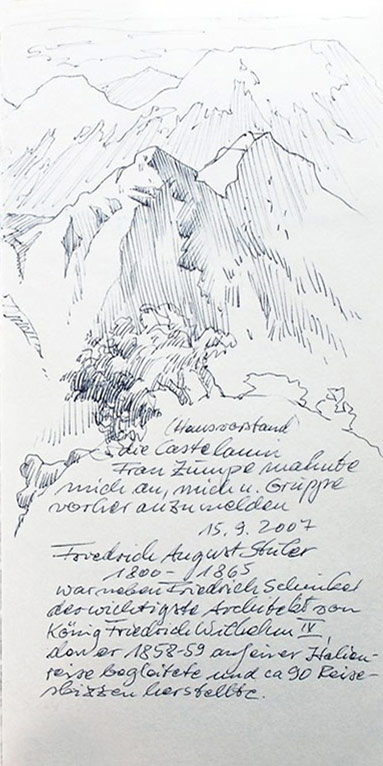 (Hausvorstand)
die Castelanin
Frau Zumpe mahnte
mich an, mich u. Gruppe
vorher anzumelden
15. 9. 2007
Friedrich August Stüler
1800 - 1865
war neben Friedrich Schinkel
der wichtigste Architekt von
König Friedrich Wilhelm IV,
den er 1858-59 auf einer Italien-
reise begleitete und ca 90 Reise-
skizzen herstellte.